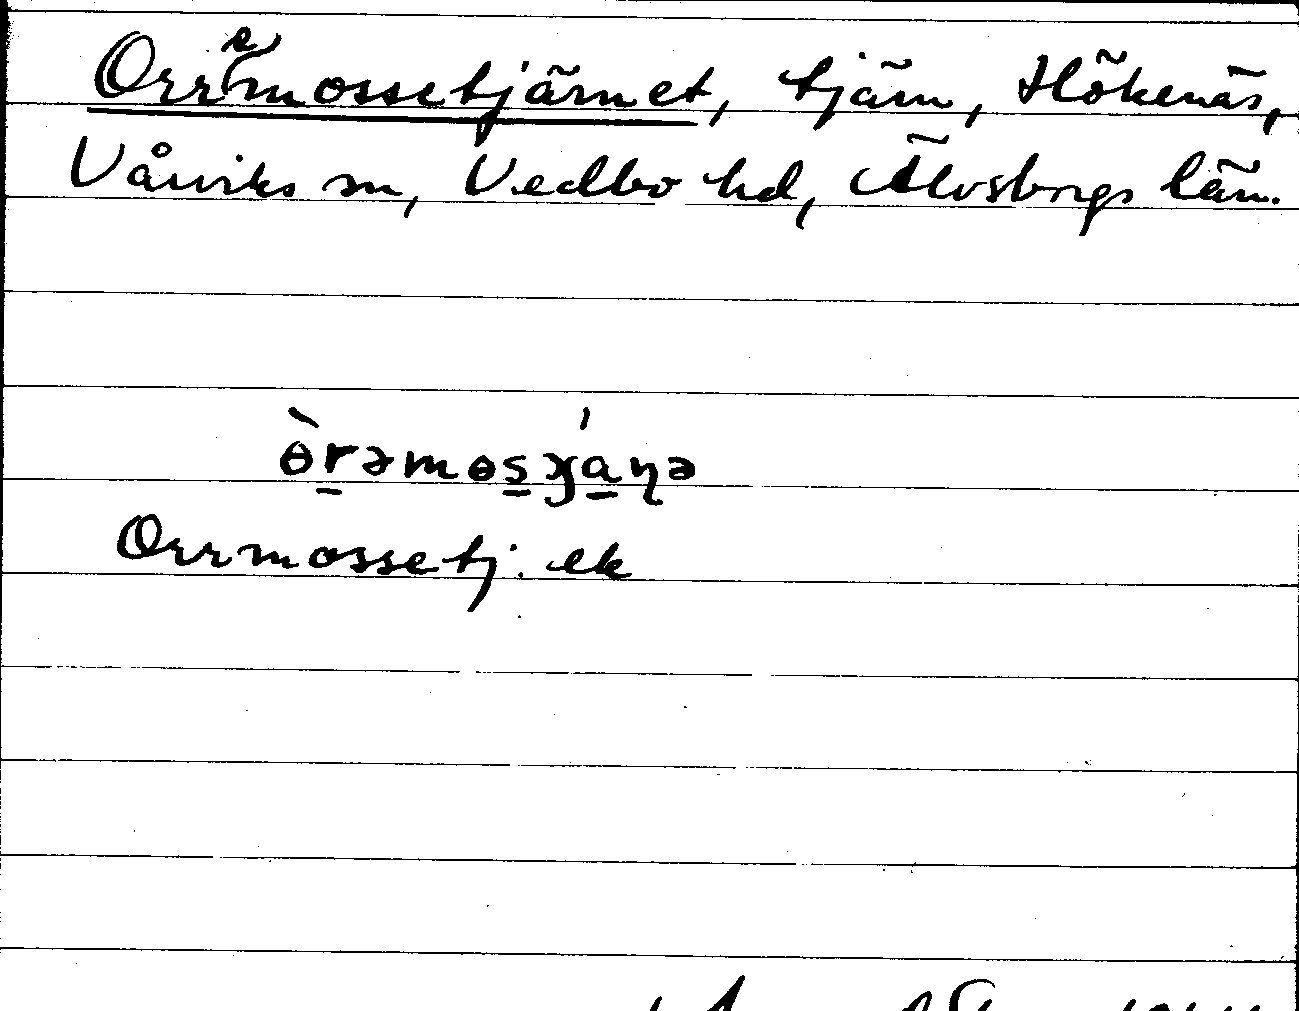 Orremossetjärnet, tjärn, Hökenäs,
Vårviks sn, Vedbo hd, Älvsborgs län.
Orrmossetj. ek